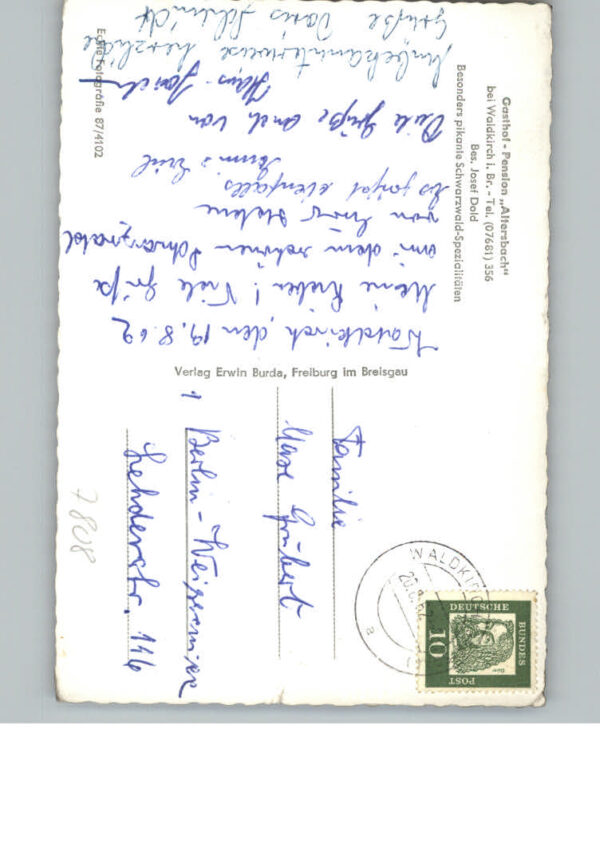 Gasthof - Pension „Altersbach"
bei Waldkirch i. Br. - Tel. (07681) 356
Bes. Josef Dold
Besonders pikante Schwarzwald-Spezialitäten
Waldkirch, den 19.8.62
Meine Lieben! Viele Grüße
aus dem schönen Schwarzwald
von
Es grüßt ebenfalls
Viele Grüße auch von
Hans-
Unbekannterweise herzliche
Grüße Doris Schmidt
Echte Fotografie 87/4102
Verlag Erwin Burda, Freiburg im Breisgau
Familie
Max Grubert
1 Berlin-Weißensee
Lehderstr. 116
7808
WALDKIRCH
20.8.62
a
DEUTSCHE
BUNDES
POST
10